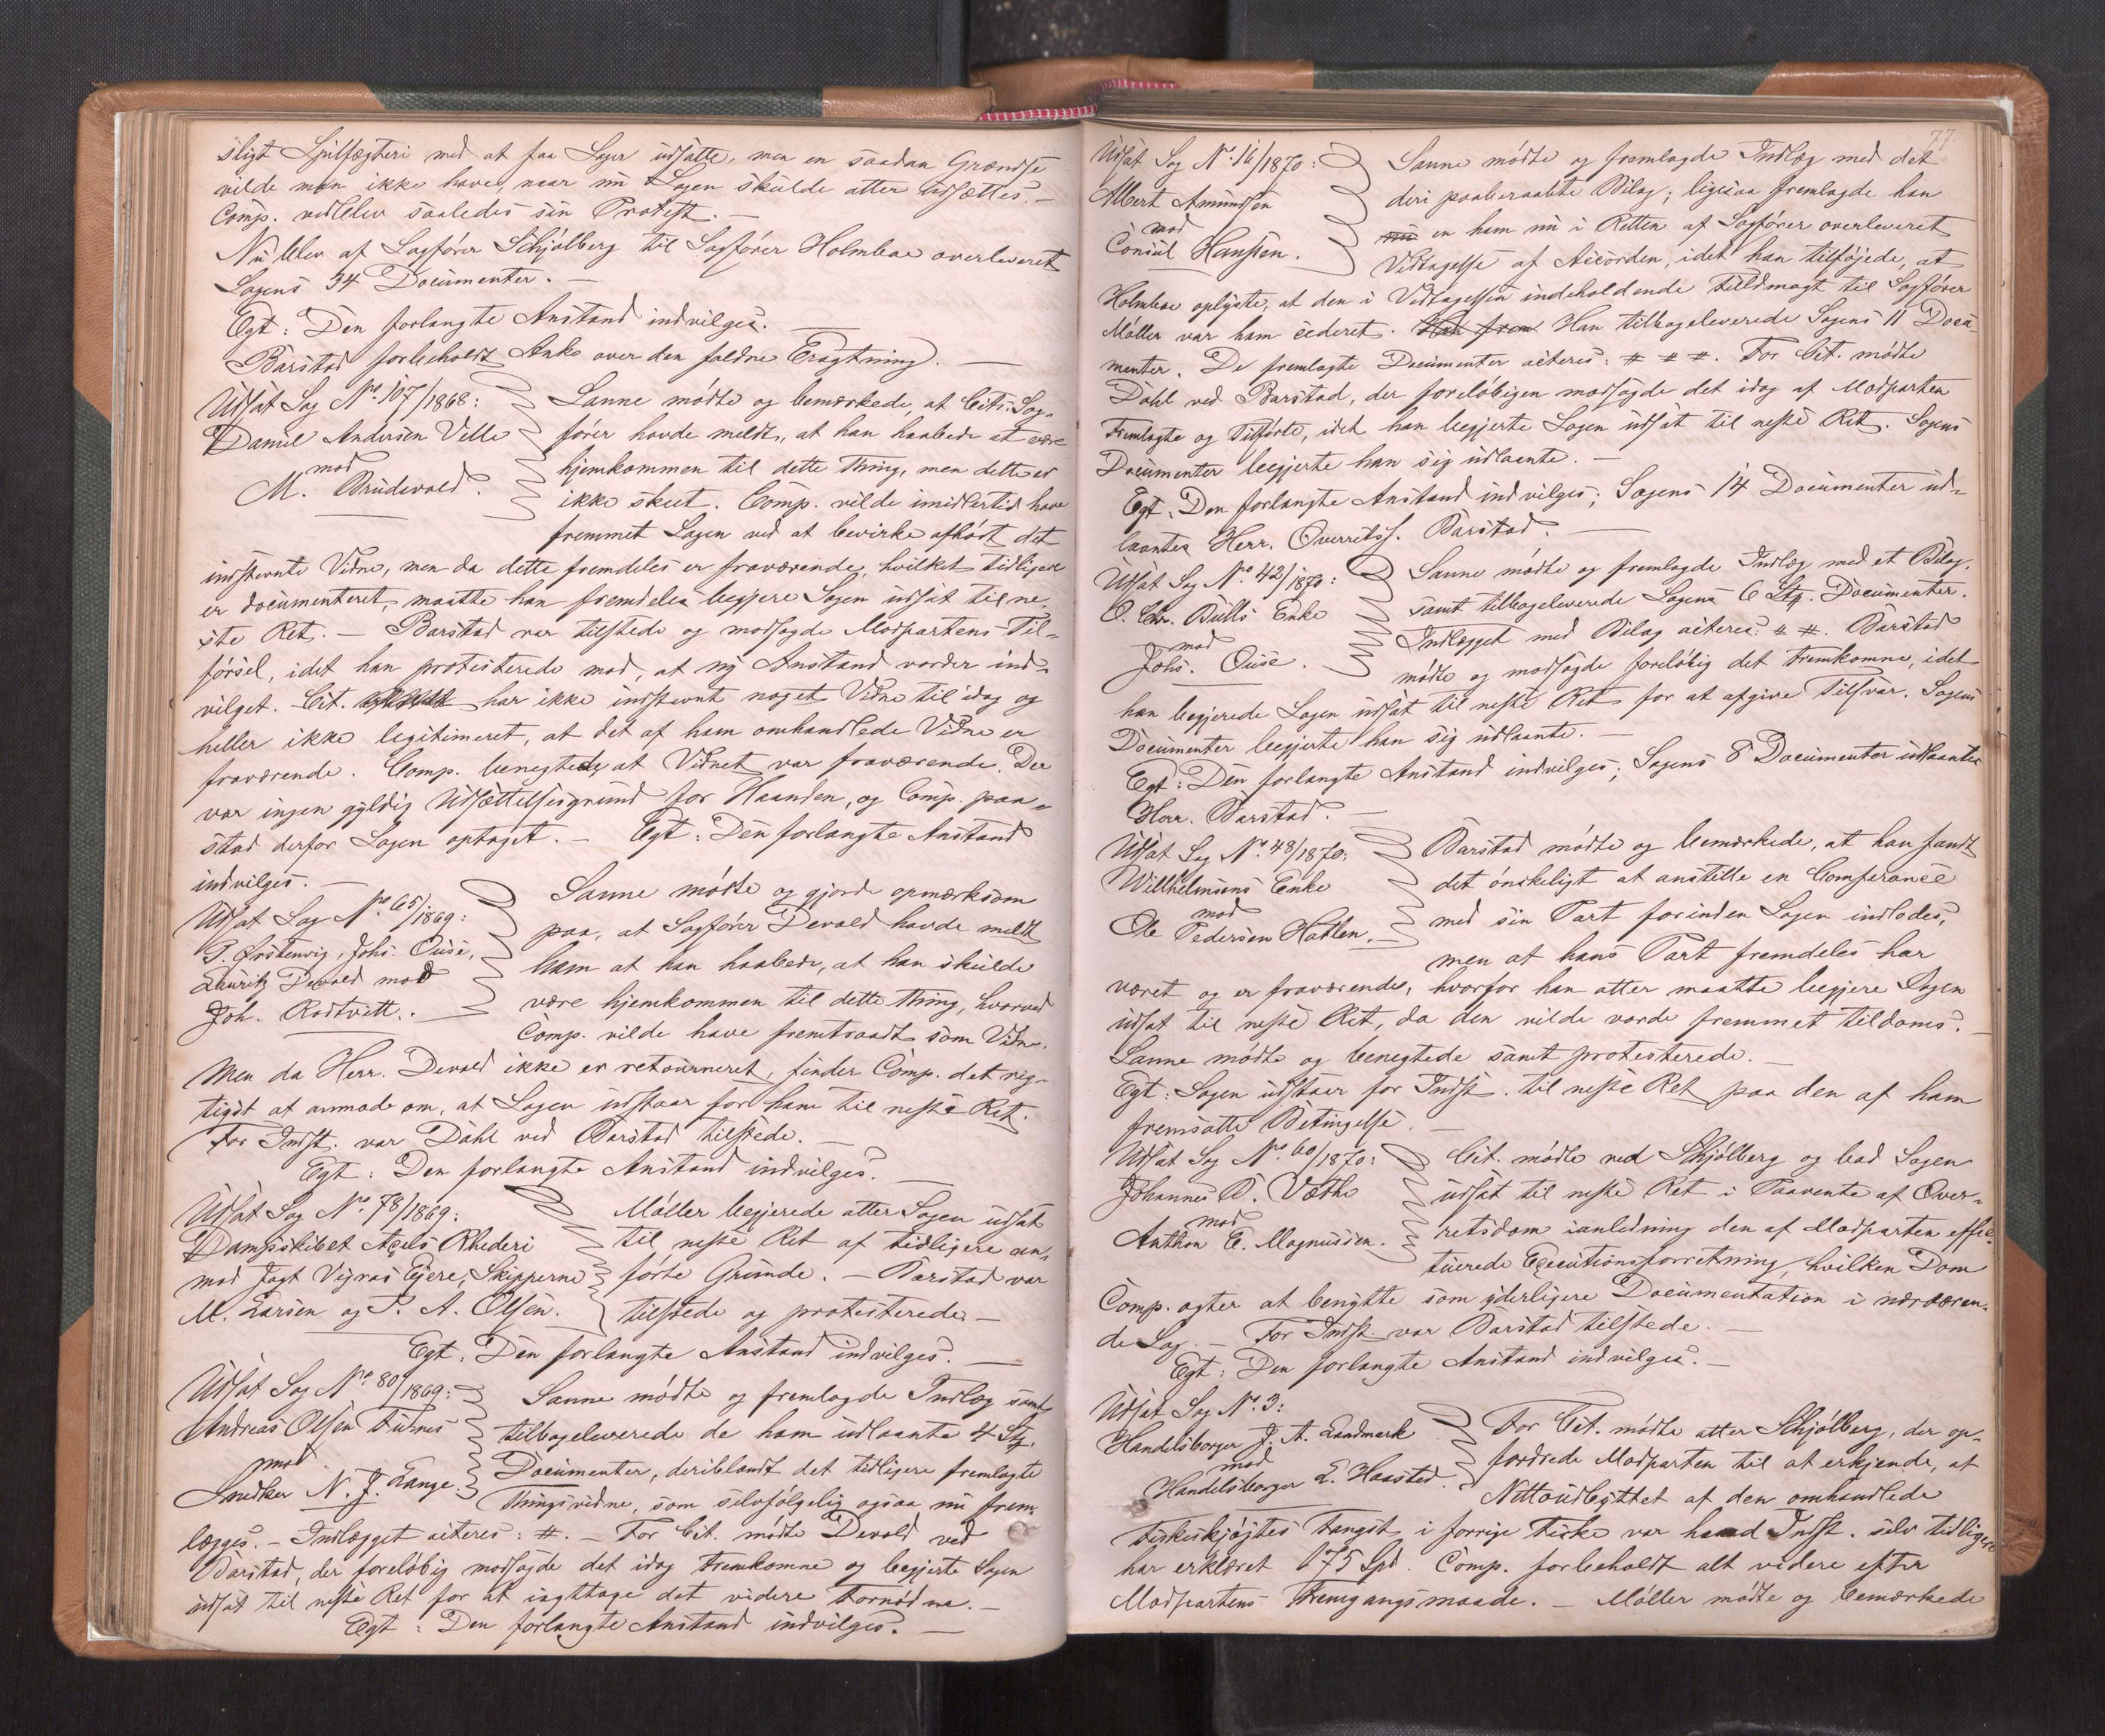 sligt Spilfægteri med at faa Sager udsatte, men en saadan Grændse
vilde man ikke have, naar nu Sagen skulde atter udsættes. –
Comp. vedblev saaledes sin Protest. –
Nu blev af Sagfører Schjølberg til Sagfører Holmboe overleveret
Sagens 34 Documenter. –
Egt: Den forlangte Anstand indvilges. –
Barstad forbeholdt Anke over den faldne Eragtning. –
Udsat Sag No 107/1868:
Daniel Andersen Velle
mod
M. Brudevold.
Sanne mødte og bemærkede, at Cits. Sag-
fører havde meldt, at han haabede at være
hjemkommen til dette Thing, men dette er
ikke skeet. Comp. vilde imidlertid have
fremmet Sagen ved at bevirke afhørt det
indstevnte Vidne, men da dette fremdeles er fraværende, hvilket tidligere
er documenteret, maatte han fremdeles begjere Sagen udsat til ne-
ste Ret. – Barstad var tilstede og modsagde Modpartens Til-
førsel, idet han protesterede mod, at ny Anstand vorder ind-
vilget. Cit. har ikke indstevnt noget Vidne til idag og
heller ikke legitimeret, at det af ham omhandlede Vidne er
fraværende. Comp. benegtede, at Vidnet var fraværende. Der
var ingen gyldig Udsættelsesgrund for Haanden, og Comp. paa-
stod derfor Sagen optaget. – Egt: Den forlangte Anstand
indvilges. –
Udsat Sag No 65/1869:
P. Østenvig, Johs. Ouse,
Lauritz Devold mod
Joh. Rodtvitt.
Sanne mødte og gjorde opmærksom
paa, at Sagfører Devold havde meldt
ham at han haabede, at han skulde
være hjemkommen til dette Thing, hvorved
Comp. vilde have fremtraadt som Vidne.
Men da Herr. Devold ikke er retourneret, finder Comp. det rig-
tigst at anmode om, at Sagen udstaar for ham til neste Ret.
For Indst. var Dahl ved Barstad tilstede. –
Egt: Den forlangte Anstand indvilges. –
Udsat Sag No 78/1869:
Dampskibet Axels Rhederi
mod Jagt Vejras Ejere, Skipperne
M. Larsen og P. A. Olsen.
Møller begjerede atter Sagen udsat
til neste Ret af tidligere an-
førte Grunde. – Barstad var
tilstede og protesterede –
Egt. Den forlangte Anstand indvilges. –
Udsat Sag No 80/1869:
Andreas Olsen Furnes
mod
Snedker N. J. Lange.
Sanne mødte og fremlagde Indlæg samt
tilbageleverede de ham udlaante 4 Stg.
Documenter, deriblandt det tidligere fremlagte
Thingsvidne, som selvfølgelig ogsaa nu frem-
lægges. – Indlægget aiteres: #. – For Cit. mødte Devold ved
Barstad, der foreløbig modsagde det idag Fremkomne og begjerte Sagen
udsat til neste Ret for at iagttage det videre Fornødne. –
Egt: Den forlangte Anstand indvilges. –
77.
Udsat Sag No 16/1870:
Albert Amundsen
mod
Consul Hanssen.
Sanne mødte og fremlagde Indlæg med det
deri paaberaabte Bilag; ligesaa fremlagde han
en ham nu i Retten af Sagfører overleveret
Vedtagelse af Accorden, idet han tilføjede, at
Holmboe oplyste, at den i Vedtagelsen indeholdende Fuldmagt til Sagfører
Møller var ham cederet. Han frem Han tilbageleverede Sagens 11 Docu-
menter. De fremlagte Documenter aiteres: # # #. For Cit. mødte
Dahl ved Barstad, der foreløbigen modsagde det idag af Modparten
Fremlagte og Tilførte, idet han begjerte Sagen udsat til neste Ret. Sagens
Documenter begjerte han sig udlaante. –
Egt. Den forlangte Anstand indvilges; Sagens 14 Documenter ud-
laantes Herr. Overretss. Barstad. –
Udsat Sag No 42/1870:
O. Chr. Bulls Enke
mod
Johs. Ouse.
Sanne mødte og fremlagde Indlæg med et Bilag,
samt tilbageleverede Sagens 6 Stg. Documenter.
Indlægget med Bilag aiteres: # #. Barstad
mødte og modsagde foreløbig det Fremkomne, idet
han begjerede Sagen udsat til neste Ret for at afgive Tilsvar. Sagens
Documenter begjerte han sig udlaante. –
Egt: Den forlangte Anstand indvilges; Sagens 8 Documenter udlaantes
Herr. Barstad. –
Udsat Sag No 48/1870:
Willhelmsens Enke
mod
Ole Pedersen Hatlen.
Barstad mødte og bemærkede, at han fandt
det ønskeligt at anstille en Comferance
med sin Part forinden Sagen indlodes,
men at hans Part fremdeles har
været og er fraværende, hvorfor han atter maatte begjere Sagen
udsat til neste Ret, da den vilde vorde fremmet til doms. –
Sanne mødte og benegtede samt protesterede. –
Egt: Sagen udstaar for Indst. til neste Ret paa den af ham
fremsatte Betingelse. –
Udsat Sag No 60/1870:
Johannes A. Vathe
mod
Anthon E. Magnussen.
Cit. mødte ved Schjølberg og bad Sagen
udsat til neste Ret i Paavente af Over-
retsdom ianledning den af Modparten effec-
tuerede Executionsforretning, hvilken Dom
Comp. agter at benytte som yderligere Documentation i nærværen-
de Sag. – For Indst. var Barstad tilstede. –
Egt: Den forlangte Anstand indvilges. –
Udsat Sag No 3:
Handelsborger J. A. Landmark
mod
Handelsborger L. Haasted.
For Cit. mødte atter Schjølberg, der op-
fordrede Modparten til at erkjende, at
Nettoudbyttet af den omhandlede
Fiskeskjøjtes Fangst i forrige Fiske var hvad Indst. selv tidligere
har erklæret 175 Spd. Comp. forbeholdt alt videre efter
Modpartens Fremgangsmaade. – Møller mødte og bemærkede